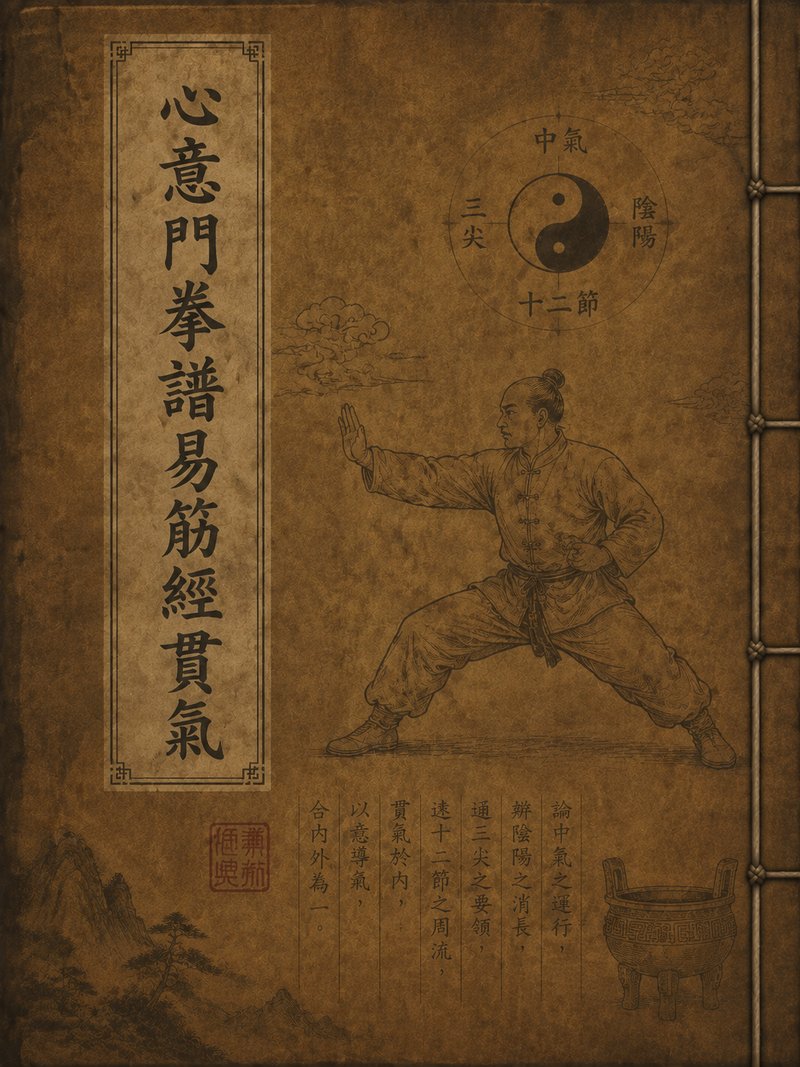 心意門拳譜易筋經貫氣
中氣
三尖
陰陽
十二節
論中氣之運行，
辨陰陽之消長，
通三尖之要領，
速十二節之周流，
貫氣於內，
以意導氣，
合內外為一。